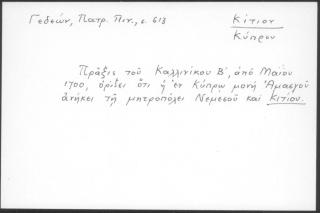 Γεδεών, Πατρ. Πιν., σ. 613
Κιτίου
Κύπρου
Πρᾶξις τοῦ Καλλινίκου Β΄, ἀπό Μαΐου
1700, ὁρίζει ὅτι ἡ ἐν Κύπρῳ μονή Ἀμασγοῦ
ἀνήκει τῇ μητροπόλει Νεμεσοῦ καί Κιτίου.